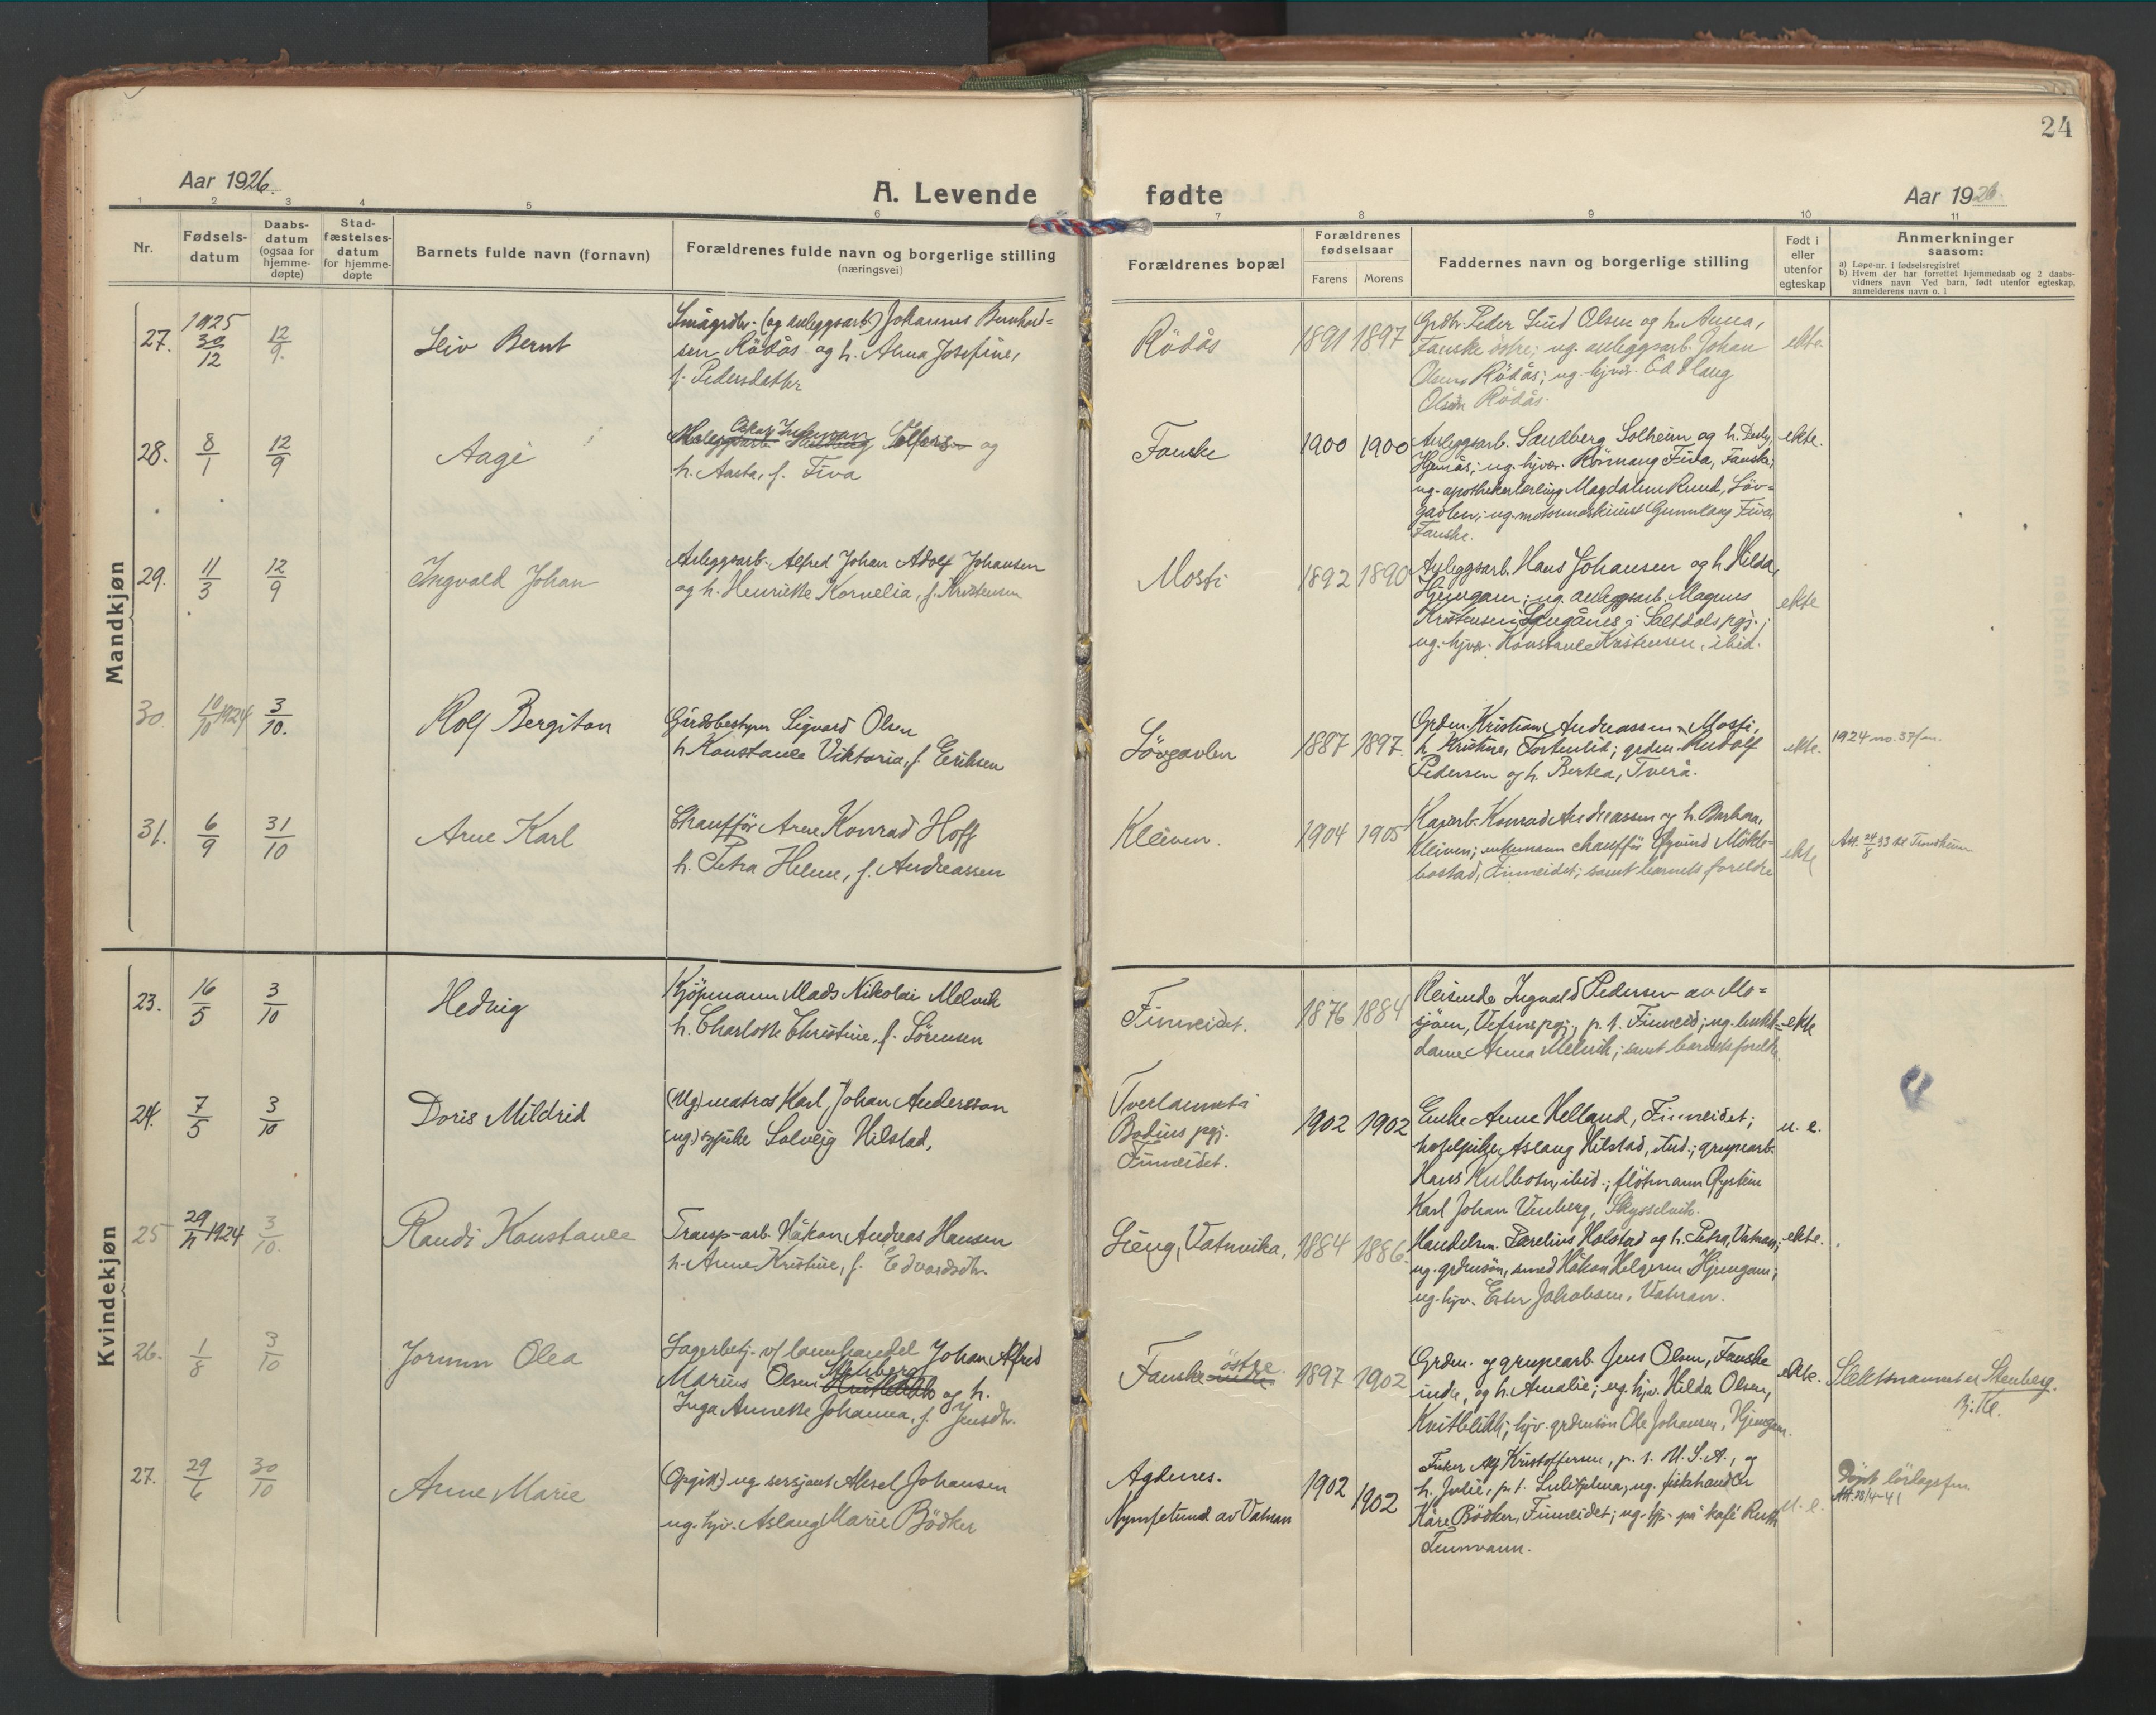 24
Aar 1926.
A. Levende
fødte
Aar 1926.
1 2 3 4 5 6 7 8 9 10 11
Nr.
Fødsels-
datum
Daabs-
datum
(ogsaa for
hjemme-
døpte)
Stad-
fæstelses-
datum
for hjemme-
døpte
Barnets fulde navn (fornavn)
Forældrenes fulde navn og borgerlige stilling
(næringsvei)
Forældrenes bopæl
Forældrenes
fødselsaar
Farens Morens
Faddernes navn og borgerlige stilling
Født i
eller
utenfor
egteskap
Anmerkninger
saasom:
a) Løpe-nr. i fødselsregistret
b) Hvem der har forrettet hjemmedaab og 2 daabs-
vidners navn Ved barn, født utenfor egteskap,
anmelderens navn o. l
Mandkjøn
27. 1925 30/12 12/9.
Leiv Bernt
Smågrdbr. (og anleggsarb.) Johannes Bernhard=
sen Rödås og h. Anna Josefine,
f. Pedersdatter
Rödås
1891 1897
Grdbr. Peder Olsen og h. Anna,
Fauske östre; ug. anleggsarb. Johan
Olsen Rödås; ug. hjvær.
Olsen Rödås.
ekte.
28. 8/1 12/9
Aage
Oskar Ingeman
og
h. Aasta, f. Fiva
Fauske
1900 1900
Anleggsarb. Sandberg Solheim og h.
ug. hjvær. Fiva, Fauske;
ug. apothekerlærling Magdalene Löv=
gavlen; ug. motormaskinist Gunnlaug Fiva
Fauske.
ekte.
29. 11/3 12/9
Ingvald Johan
Anleggsarb. Alfred Johan Adolf Johansen
og h. Henriette Kornelia, f. Kristensen
Mosti
1892 1890
Anleggsarb. Hans Johansen og h. Hilda,
Hjemgam; ug. anleggsarb. Magnus
Kristensen i Saltdals pgj.;
ug. hjvær. Konstanse Kristensen, ibid.
ekte
30. 10/10 1924 3/10.
Rolf Bergiton
Gårdsbestyrer Sigvard Olsen
h. Konstanse Viktoria, f. Eriksen
Lövgavlen
1887 1897.
Grdm. Kristian Andreassen, Mosti,
h. Kristine, Tortenlid; grdm. Rudolf
Pedersen og h. Bertea, Tverå.
ekte.
1924 no. 37/m.
31. 6/9 31/10
Arne Karl
Chauffør Arne Konrad Hoff
h. Petra Helene, f. Andreassen
Kleiven.
1904 1905
Konrad Andreassen og h. Barbara,
Kleiven; enkemann chauffør Øyvind Mökle=
bostad, Finneidet; samt barnets foreldre
ekte
Att. 24/8 33 til Trondheim
Kvindekjøn
23. 16/5 3/10
Hedvig
Kjöpmann Mads Nikolai Melvik
h. Charlotte Christine, f. Sörensen
Finneidet.
1876 1884
Reisende Ingvald Pedersen av Mo=
sjöen, Vefsns pgj., p. t. Finneid; ug. butikk=
dame Anna Melvik; samt barnets foreldre
ekte
24. 7/5 3/10
Doris Mildrid
(Ug.) matros Karl Johan Andersson
(ug.) sypike Solveig Hilstad,
Tverlannet i
Bodins pgj.
Finneidet.
1902 1902
Enke Anne Helland, Finneidet;
hotelpike Aslaug Hilstad, ibid.; grupearb.
Hans Kulbotn, ibid.; flötmann Øystein
Karl Johan Venberg, Skysselvik.
u. e.
25 29/11 1924 3/10.
Randi Konstanse
Transp-arb. Håkon Andreas Hansen
h. Anne Kristine, f. Edvardsdtr.
Lieng, Vatnvika,
1884 1886.
Handelsm. Parelius Holstad og h. Petra, Vatnan;
ug. grdmsön, smed Håkon Helgesen Hjemgam;
ug. hjv. Ester Jakobsen, Vatnan.
ekte.
26. 1/8 3/10
Jorunn Olea
Lagerbetj. v/ Johan Alfred
Marius Olsen Stenberg og h.
Inga Annette Johanna, f. Jensdtr.
Fauske östre indre
1897 1902
Grdm. og grupearb. Jens Olsen, Fauske
indre, og h. Amalie; ug. hjv. Hilda Olsen,
Kvitblikk; hjv. grdmsön Ole Johansen, Hjemgam.
ekte.
Slektsnavnet er Stenberg.
27. 29/6 30/10
Anne Marie
(Opgitt:) ug. sersjant Aksel Johansen
ug. hjv. Aslaug Marie Bödker
Agdenes.
Nymfetund av Vatnan
1902 1902
Fisker Alf Kristoffersen, p. t. U.S.A., og
h. Julie, p. t. Sulitjelma; ug. fiskehandler
Kåre Bödker, Finneidet; ug. hjv. på kafé Ruth
Tennvann.
u. e.
Att. 28/4-41